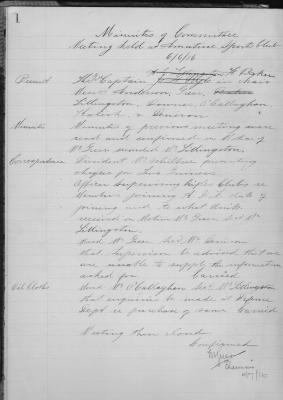 1
Minutes of Committee
Meeting held at Amateur Sports Club
6/6/16
Present The Captain in Chair
Mess Anderson, Greer,
Lillingston, Downer, O'Callaghan
& Denison
Minutes Minutes of previous meeting were
read and confirmed on Motion of
Mr Greer seconded Mr Lillingston.
Correspondence President Mr Schillner promising
cheques for Two Guineas
Officer Supervising Rifle Clubs re
Members joining A.I.F. date of
joining and to what Units
received on Motion Mr Greer Sec Mr
Lillingston.
Moved Mr Greer Sec Mr Denison
that Supervisor be advised that we
are unable to supply the information
asked for Carried
Oil Cloths Moved Mr O'Callaghan Sec Mr Lillingston
that enquiries be made at Defence
Dept re purchase of same Carried
Meeting then closed
Confirmed
Chairman